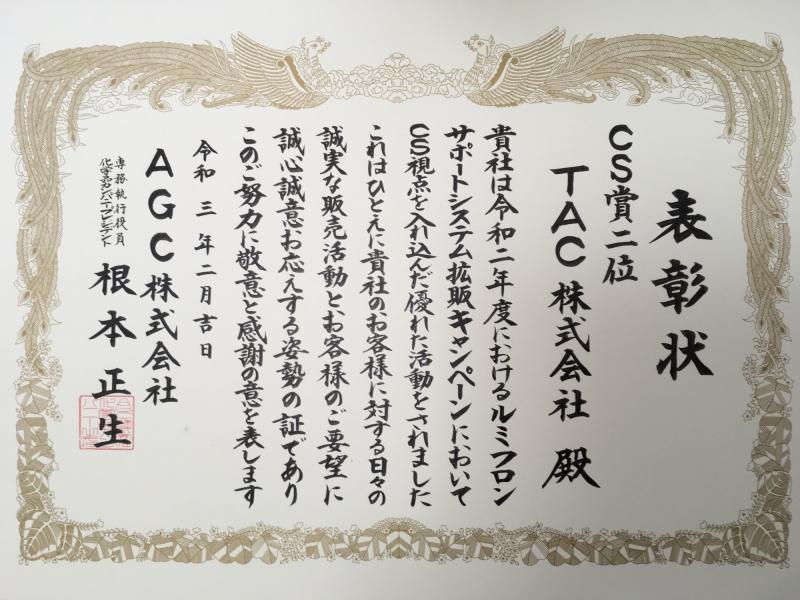 表彰状
CS賞二位
TAC株式会社 殿
貴社は令和二年度におけるルミフロン
サポートシステム拡販キャンペーンにおいて
CS視点を入れ込んだ優れた活動をされました
これはひとえに貴社のお客様に対する日々の
誠実な販売活動と、お客様のご要望に
誠心誠意お応えする姿勢の証であり
このご努力に敬意と感謝の意を表します
令和三年二月吉日
AGC株式会社
専務執行役員
化学品カンパニープレジデント
根本正生